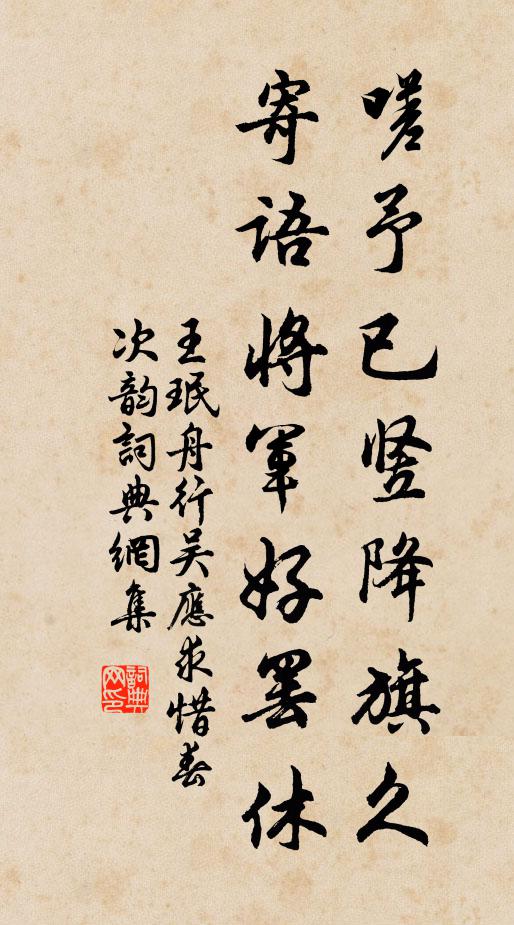 嗟予已竖降旗久
寄语将军好罢休
王珉舟行吴應求惜春
次韵詞典網集
詞典
网印